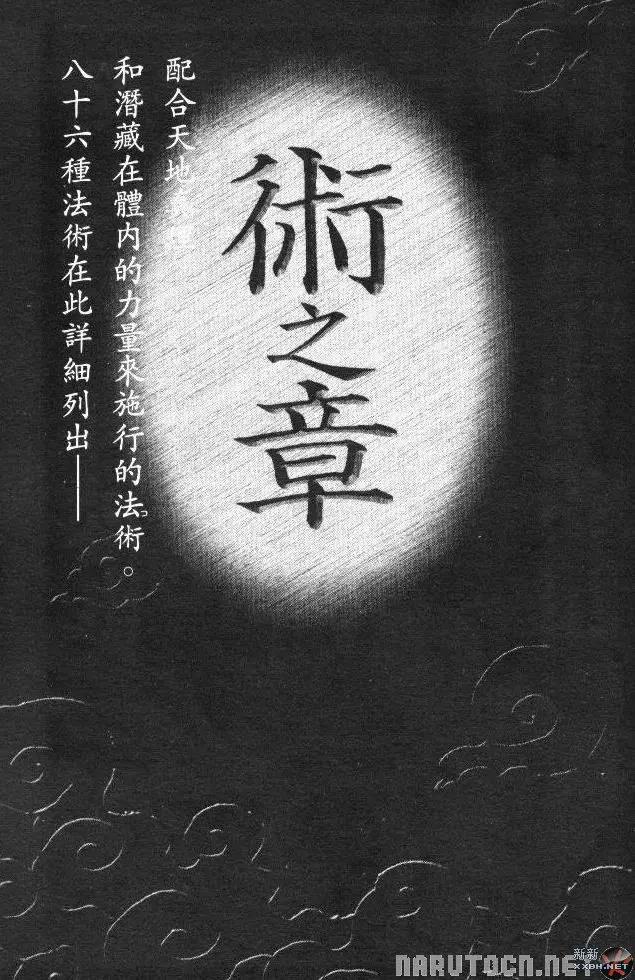 術之章
配合天地真理
和潛藏在體內的力量來施行的法術。
八十六種法術在此詳細列出——
NARUTOCN.NE
新新
XXBH.NET